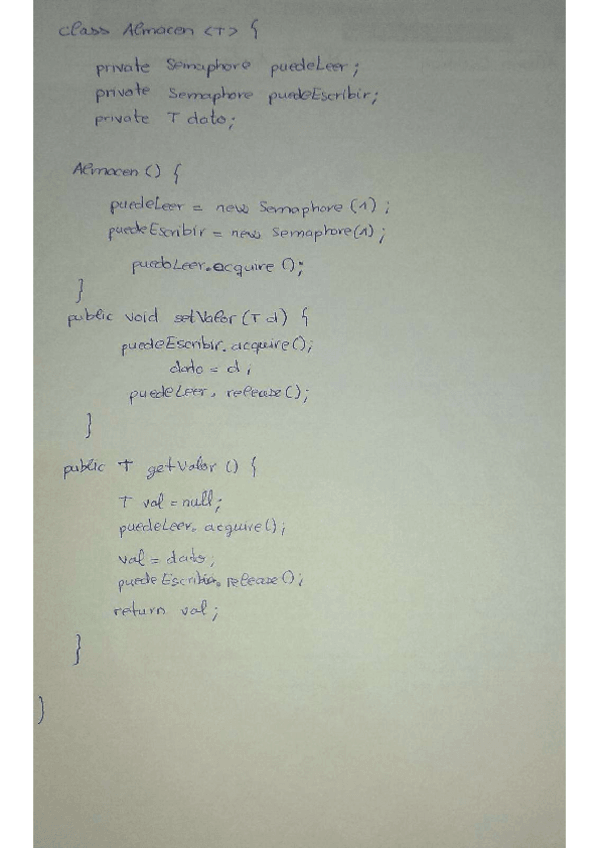 class Almacen <T> {
private Semaphore puedeLeer;
private Semaphore puedeEscribir;
private T dato;
Almacen () {
puedeLeer = new Semaphore (1) ;
puedeEscribir = new Semaphore(1) ;
puedoLeer.acquire ();
}
public void setValor (T d) {
puedeEscribir. acquire();
dato = d ;
puedeLeer. release();
}
public T getValor () {
T val = null;
puedeLeer. acquire();
val = dato;
puedeEscribir. release();
return val;
}
}